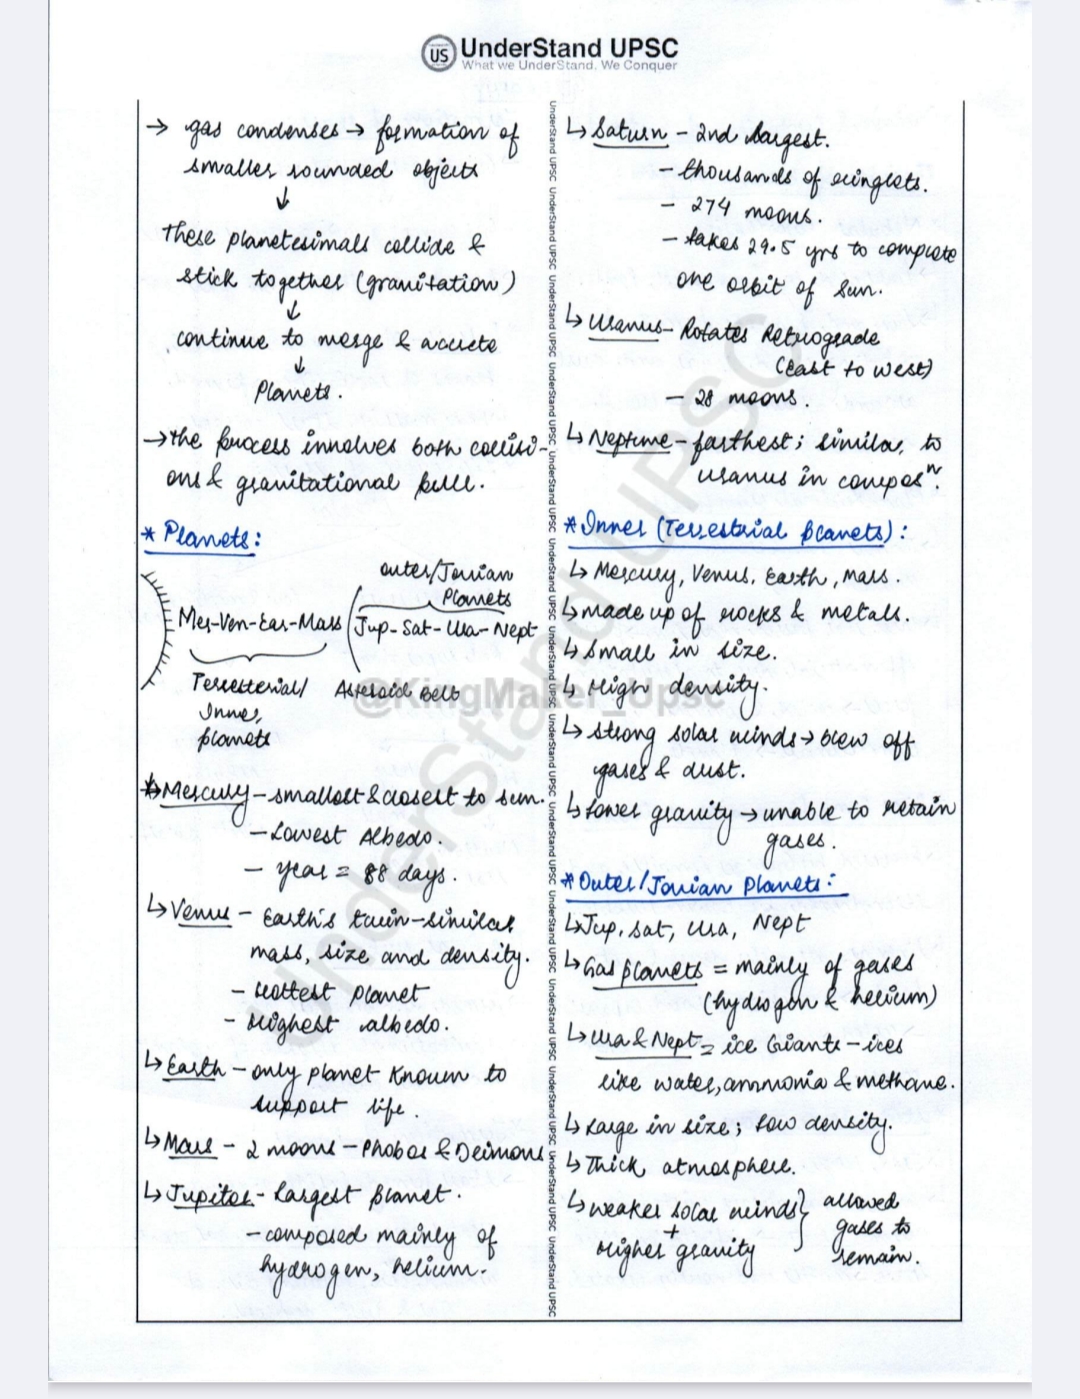 US UnderStand UPSC
What we UnderStand, We Conquer
→ gas condenses → formation of
smaller rounded objects
↓
These planetesimals collide &
stick together (gravitation)
↓
continue to merge & accrete
↓
Planets.
→ the process involves both collisi-
ons & gravitational pull.
* Planets:
outer/Jovian
Planets
Mer-Ven-Ear-Mars Jup-Sat-Ura-Nept
Terresterial/ Asteroid Belt
Inner
planets
* Mercury - smallest & closest to sun.
- Lowest Albedo.
- year = 88 days.
↳ Venus - Earth's twin - similar
mass, size and density.
- Hottest Planet
- Highest albedo.
↳ Earth - only planet known to
support life.
↳ Mars - 2 moons - Phobos & Deimons
↳ Jupiter - Largest planet.
- composed mainly of
hydrogen, helium.
↳ Saturn - 2nd largest.
- thousands of ringlets.
- 274 moons.
- takes 29.5 yrs to complete
one orbit of Sun.
↳ Uranus - Rotates Retrograde
(East to west)
- 28 moons.
↳ Neptune - farthest; similar to
uranus in composⁿ.
* Inner (Terrestrial planets):
↳ Mercury, Venus, Earth, Mars.
↳ made up of rocks & metals.
↳ Small in size.
↳ High density.
↳ strong solar winds → blew off
gases & dust.
↳ Lower gravity → unable to retain
gases.
* Outer/Jovian Planets:
↳ Jup, Sat, Ura, Nept
↳ Gas planets = mainly of gases
(hydrogen & helium)
↳ Ura & Nept = ice Giants - ices
like water, ammonia & methane.
↳ Large in size; low density.
↳ Thick atmosphere.
↳ weaker solar winds } allowed
+ gases to
Higher gravity remain.
@KingMaker_Upsc
UnderStand UPSC
UnderStand UPSC UnderStand UPSC UnderStand UPSC UnderStand UPSC UnderStand UPSC UnderStand UPSC UnderStand UPSC UnderStand UPSC UnderStand UPSC UnderStand UPSC UnderStand UPSC UnderStand UPSC UnderStand UPSC UnderStand UPSC